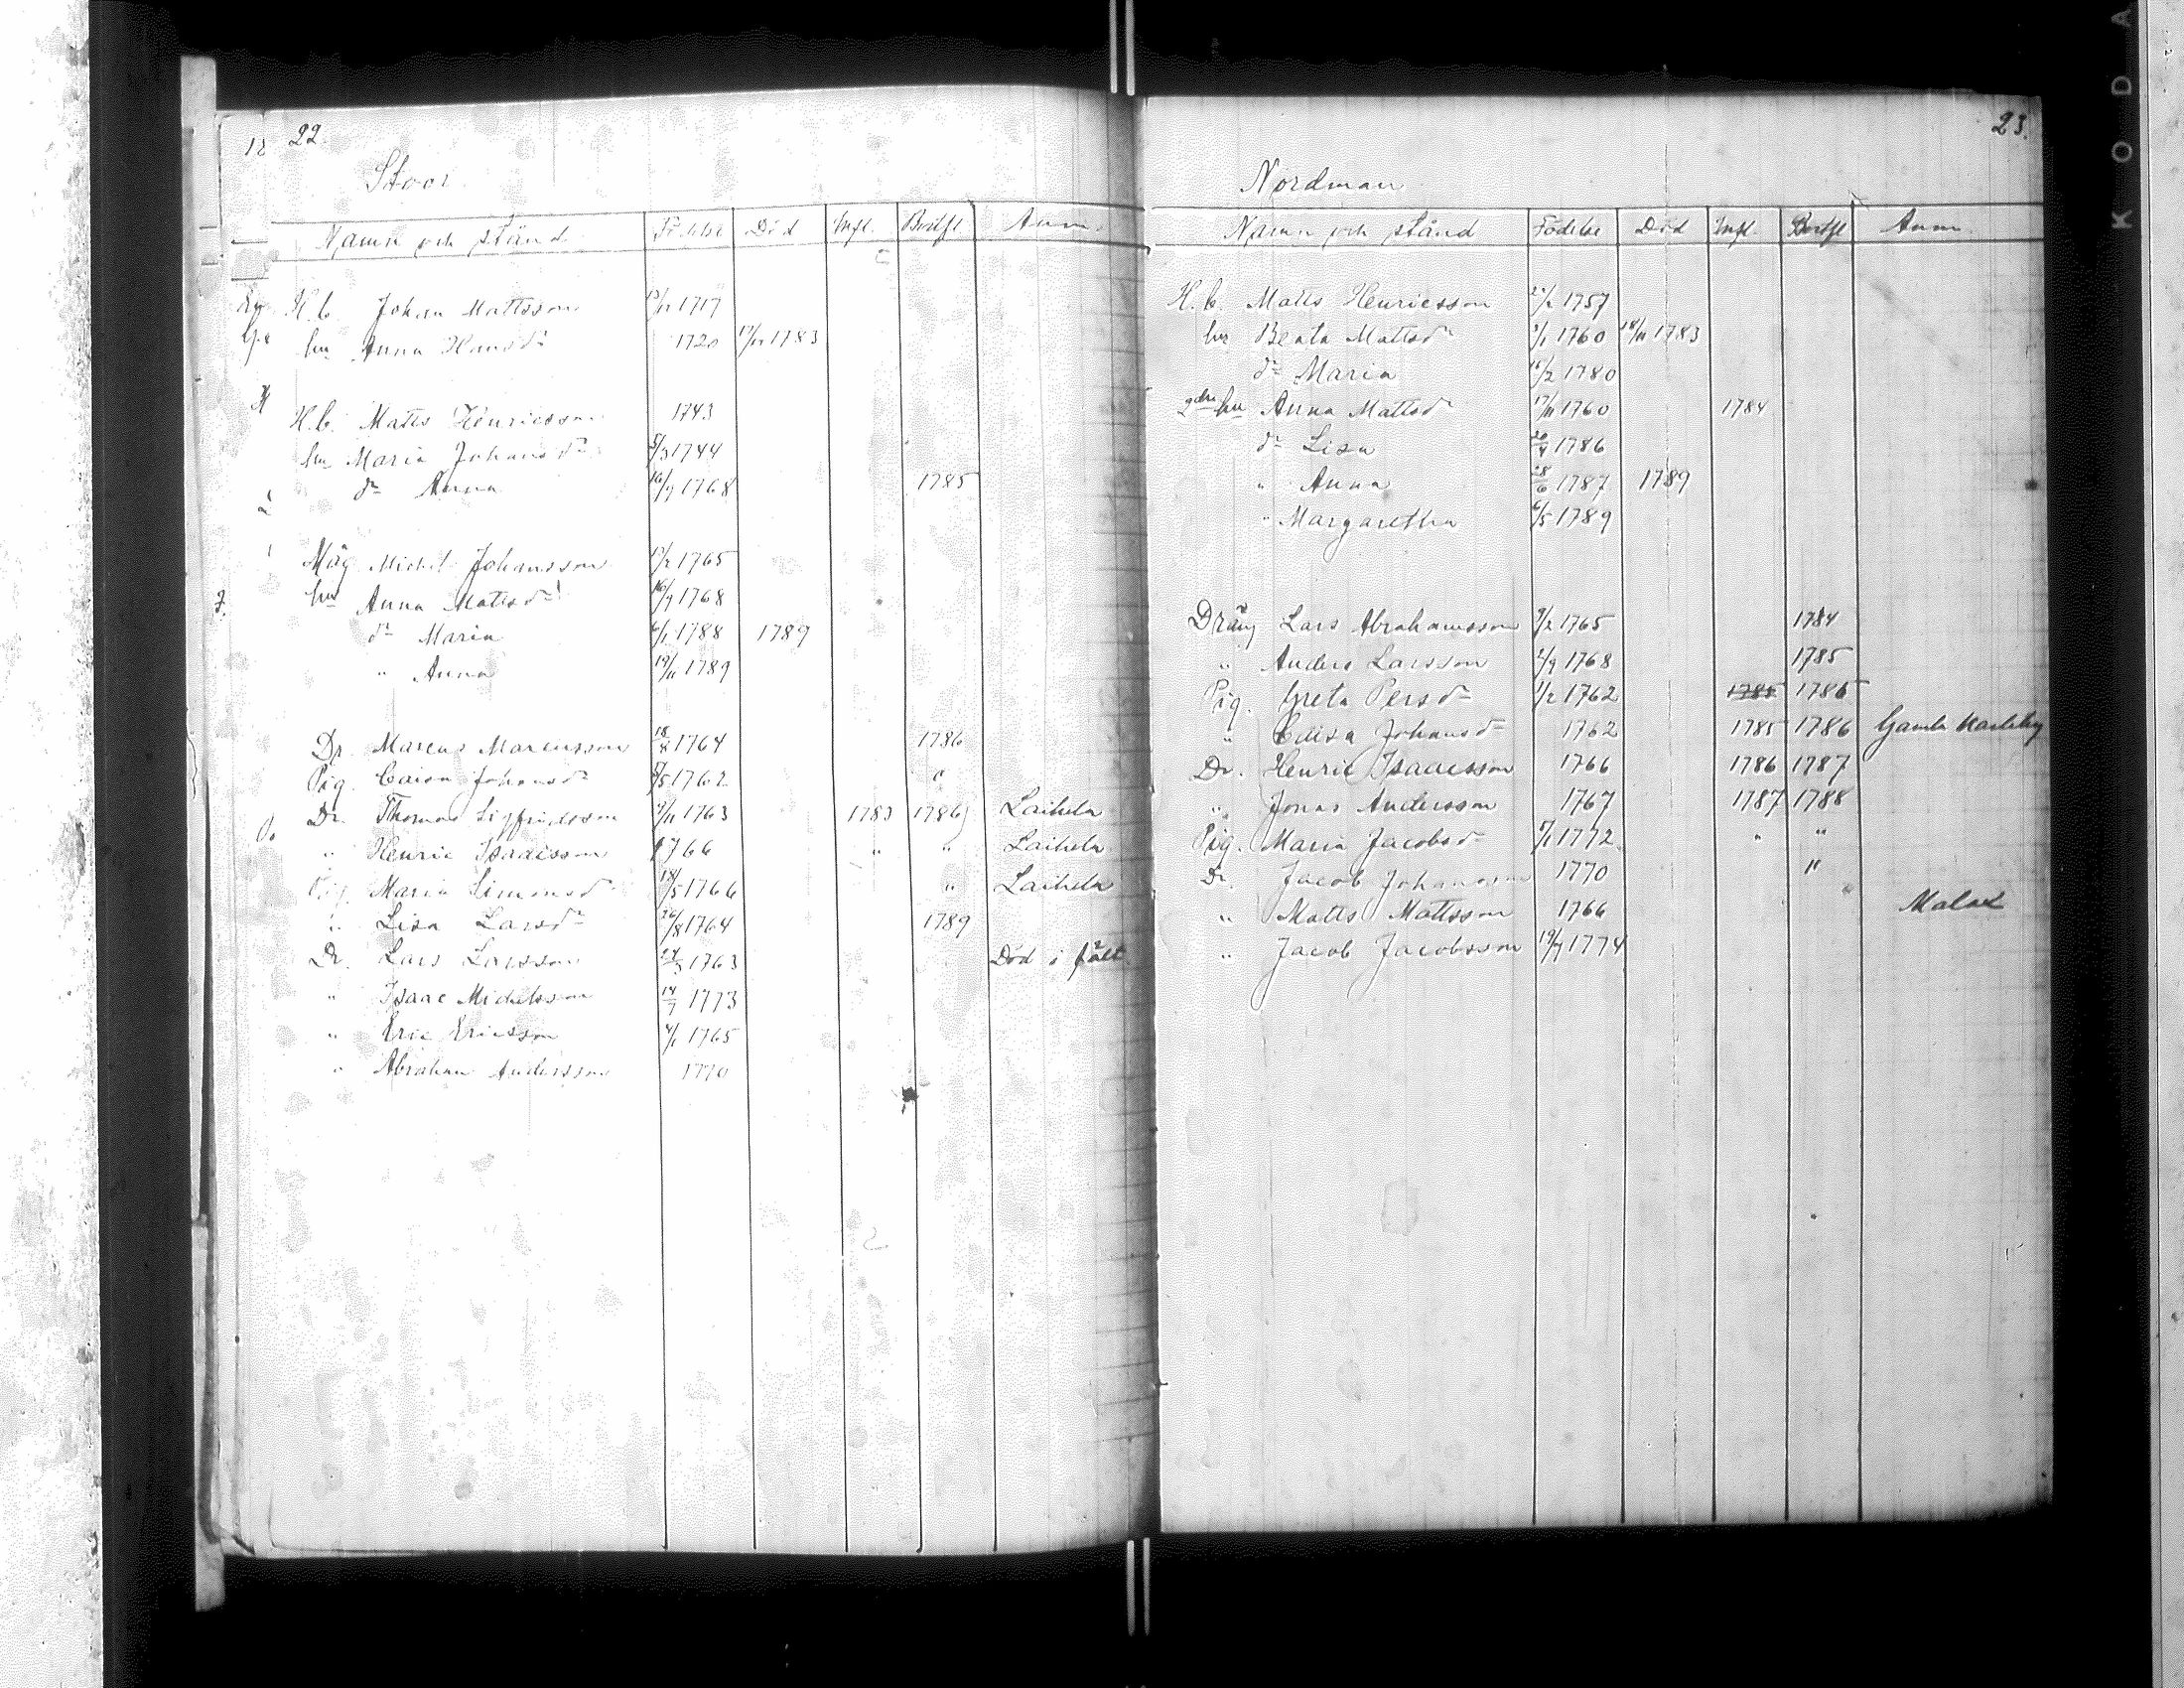 22.
Stoor.
Namn och stånd Födelse Död Infl. Bortfl Anm.
H.b. Johan Mattsson 1717
hu Anna Hansdr 1720 1783
H.b. Matts Henricsson 1743
hu Maria Johansdr 5/3 1744
dr Anna 16/9 1768 1785
Måg Michel Johansson 1765
hu Anna Mattsdr 16/9 1768
dr Maria 1788 1789
" Anna 19/11 1789
Dr. Marcus Marcusson 18/8 1764 1786
Pig. Caisa Johansdr 1762 "
Dr. Thomas Sigfridsson 9/11 1763 1783 1786 Laihela
" Henric Isacsson 1766 " " Laihela
Pig. Maria Simonsdr 18/5 1766 " Laihela
" Lisa Larsdr 26/8 1764 1789
Dr. Lars Larsson 1763 Död i fält
" Isaac Michelsson 14/7 1773
" Eric Ericsson 1765
" Abraham Andersson 1770
23.
Nordman
Namn och stånd Födelse Död Infl. Bortfl Anm.
H.b. Matts Henricsson 1757
hu Beata Mattsdr 1/1 1760 18/11 1783
dr Maria 1780
2dra hu Anna Mattsdr 17/11 1760 1784
dr Lisa 26/4 1786
" Anna 28/6 1787 1789
" Margaretha 6/5 1789
Dräng Lars Abrahamsson 9/2 1765 1784
" Anders Larsson 1768 1785
Pig. Greta Persdr 1/2 1762 1785 1785
" Caisa Johansdr 1762 1785 1786 Gamla Karleby
Dr. Henric Isaacsson 1766 1786 1787
" Jonas Andersson 1767 1787 1788
Pig. Maria Jacobsdr 1772 " "
Dr. Jacob Johansson 1770 "
" Matts Mattsson 1766 Malax
" Jacob Jacobsson 1774
KODA